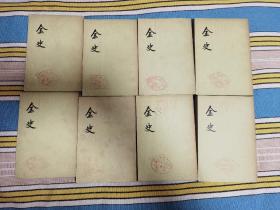 金史
金史
金史
金史
金史
金史
金史
金史